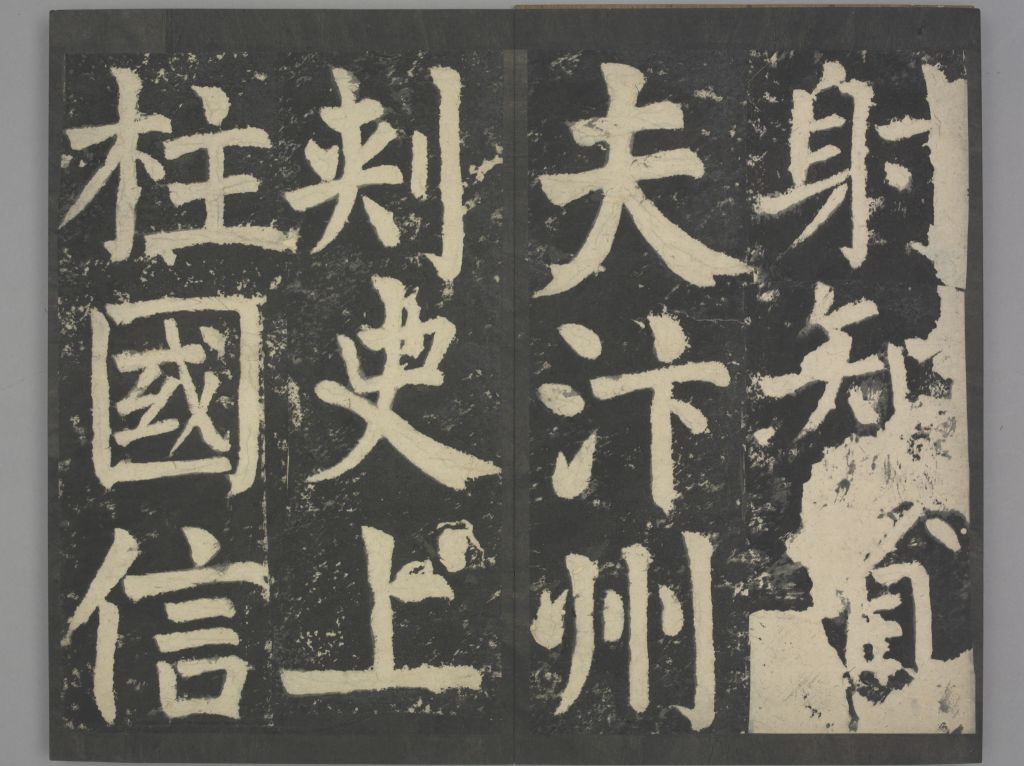 射知
夫汴州
刾史上
柱國信